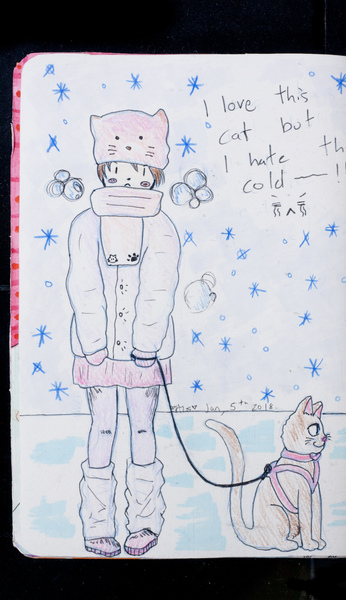 I love this
cat but
I hate th
cold — !!
Jan, 5th 2018